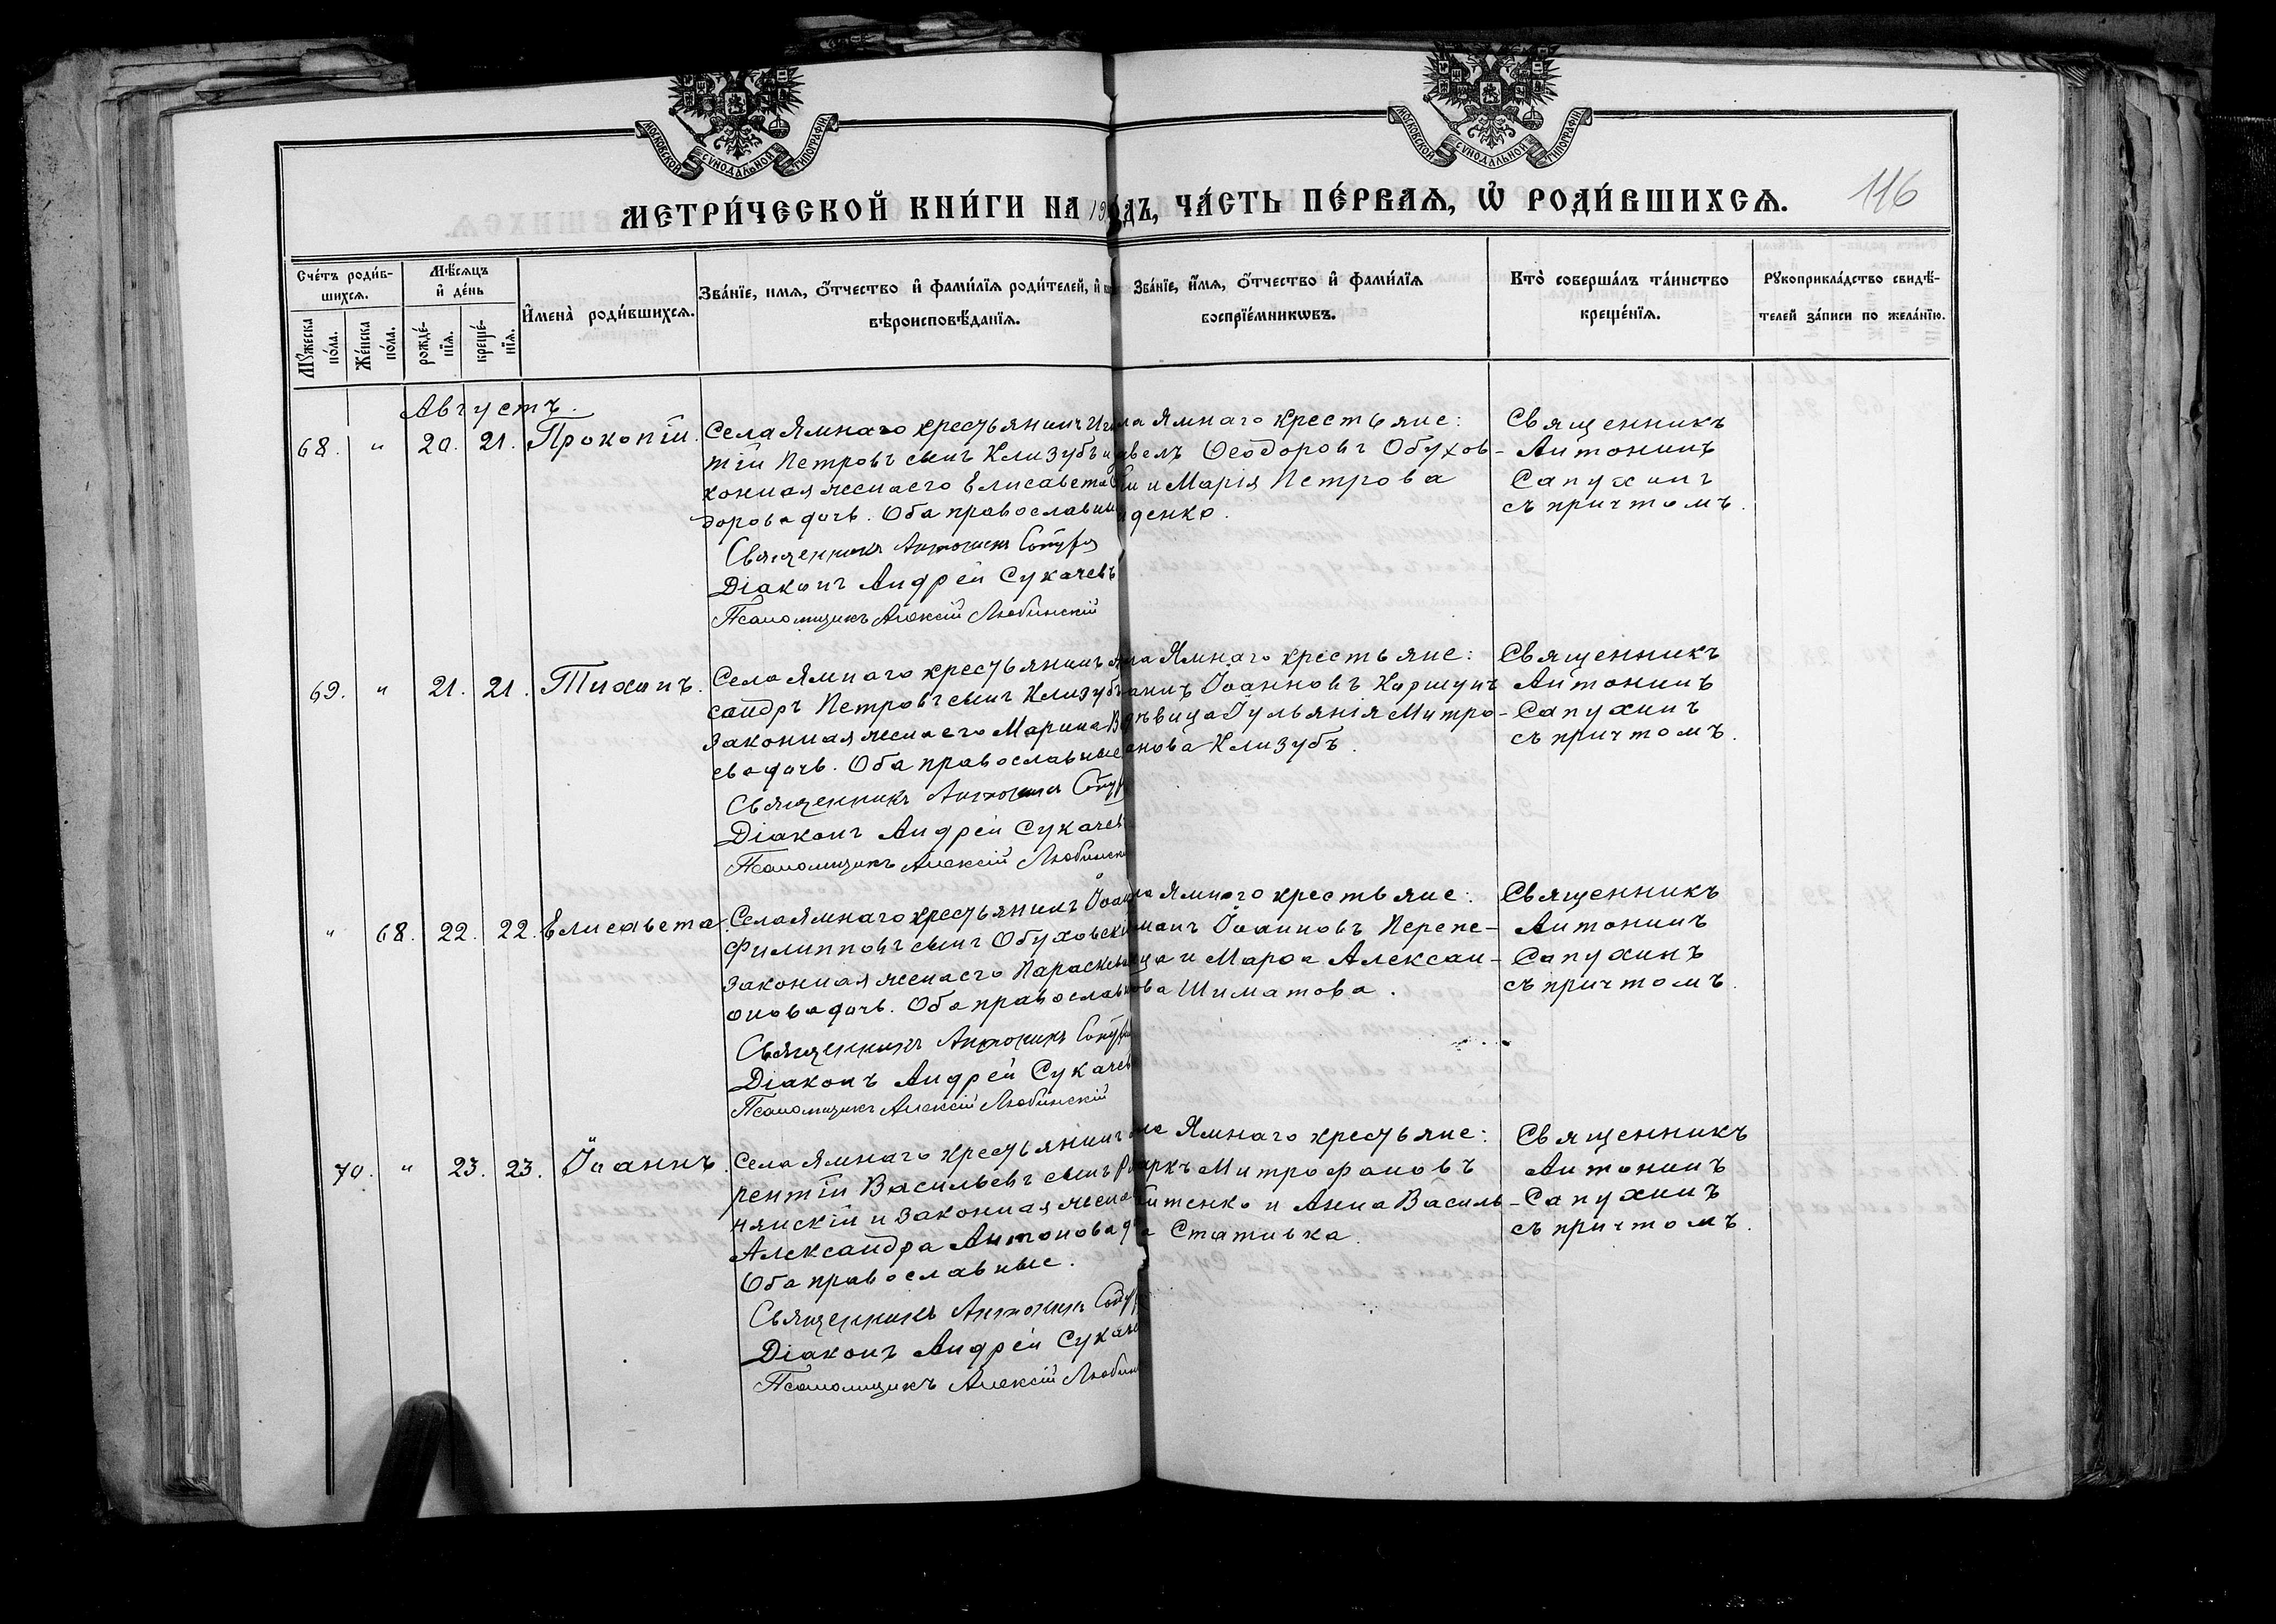 МОСКОВСКОЙ СѴНОДАЛЬНОЙ ТИПОГРАФІИ
МОСКОВСКОЙ СѴНОДАЛЬНОЙ ТИПОГРАФІИ
МЕТРИ́ЧЕСКОЙ КНИ́ГИ НА 19 ДЪ, ЧА́СТЬ ПЕ́РВАѦ, Ѡ҆ РОДИ́ВШИХСѦ.
116
Сче́тъ роди́в-
шихся.
Мѣ́сяцъ
и҆ де́нь
Мꙋ́жеска
по́ла.
Же́нска
по́ла.
рожде́-
нїѧ.
креще́-
нїѧ.
И҆мена̀ роди́вшихсѧ.
Зва́нїе, имѧ, ѻ҆́тчество и҆ фами́лїѧ роди́телей, и҆
вѣроисповѣ́данїѧ.
Зва́нїе, и҆́мѧ, ѻ҆́тчество и҆ фами́лїѧ
воспрїе́мникѡвъ.
Кто̀ соверша́лъ та́инство
креще́нїѧ.
Рꙋкоприкла́дство свидѣ́-
телей за́писи по жела́нїю.
Августъ.
68. " 20. 21. Прокопій.
Села Ямнаго крестьянинъ Игна
тій Петровъ сынъ Клизубъ и
конная жена его Елисавета Ѳео
дорова дочь. Оба православны
Священникъ Антонинъ Сапух
Діаконъ Андрей Сукачевъ
Псаломщикъ Алексій Любинскій
ла Ямнаго крестьяне:
авелъ Ѳеодоровъ Обухов-
ій и Марія Петрова
денко.
Священникъ
Антонинъ
Сапухинъ
съ причтомъ.
69. " 21. 21. Тихонъ.
Села Ямнаго крестьянинъ Але
сандръ Петровъ сынъ Клизубъ
Законная жена его Марина Ва
ева дочь. Оба православные
Священникъ Антонинъ Сапух
Діаконъ Андрей Сукачев
Псаломщикъ Алексій Любинскі
ла Ямнаго крестьяне:
аннъ Іоанновъ Коршунъ
дѣвица Іульянія Митро-
анова Клизубъ.
Священникъ
Антонинъ
Сапухинъ
съ причтомъ.
" 68. 22. 22. Елисавета.
Села Ямнаго крестьянинъ Іоан
Филипповъ сынъ Обуховскі
Законная жена его Параскев
онова дочь. Оба православн
Священникъ Антонинъ Сапух
Діаконъ Андрей Сукачев
Псаломщикъ Алексій Любинскій
ла Ямнаго крестьяне:
манъ Іоанновъ Перепе-
ица и Марѳа Алексан-
ова Шиматова.
Священникъ
Антонинъ
Сапухинъ
съ причтомъ.
70. " 23. 23. Іоаннъ.
Села Ямнаго крестьянинъ
рентій Васильевъ сынъ Р
нянскій и законная жена
Александра Антонова до
Оба православные.
Священникъ Антонинъ Сапух
Діаконъ Андрей Сукаче
Псаломщикъ Алексій Любин
ла Ямнаго крестьяне:
аркъ Митрофановъ
итенко и Анна Василь-
а Стативка.
Священникъ
Антонинъ
Сапухинъ
съ причтомъ.